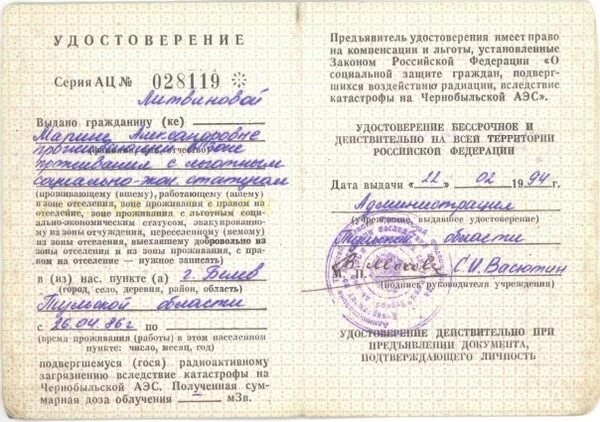 УДОСТОВЕРЕНИЕ
Серия АЦ № 028119 *
Литвиновой
Выдано гражданину (ке)
Марине Александровне
проживания с льготным
социально-экон статусом
(проживающему (вшему), работающему (вшему)
в зоне отселения, зоне проживания с правом на
отселение, зоне проживания с льготным социально-экономическим статусом, эвакуированному
из зоны отчуждения, переселенному (яемому)
из зоны отселения, выехавшему добровольно из
зоны отселения и из зоны проживания, с правом на отселение — нужное записать)
в (из) нас. пункте (а) г. Белев
(город, село, деревня, район, область)
Тульской области
с 26.04.86г по
(время проживания (работы) в этом населенном
пункте: число, месяц, год)
подвергшемуся (гося) радиоактивному
загрязнению вследствие катастрофы на
Чернобыльской АЭС. Полученная суммарная доза облучения — мЗв.
Предъявитель удостоверения имеет право
на компенсации и льготы, установленные
Законом Российской Федерации «О
социальной защите граждан, подвергшихся воздействию радиации, вследствие
катастрофы на Чернобыльской АЭС».
УДОСТОВЕРЕНИЕ БЕССРОЧНОЕ И
ДЕЙСТВИТЕЛЬНО НА ВСЕЙ ТЕРРИТОРИИ
РОССИЙСКОЙ ФЕДЕРАЦИИ
Дата выдачи «22» 02 1994г.
Администрация
(учреждение, выдавшее удостоверение)
Тульской области
М. П. С.И. Васютин
(подпись руководителя учреждения)
УДОСТОВЕРЕНИЕ ДЕЙСТВИТЕЛЬНО ПРИ
ПРЕДЪЯВЛЕНИИ ДОКУМЕНТА,
ПОДТВЕРЖДАЮЩЕГО ЛИЧНОСТЬ